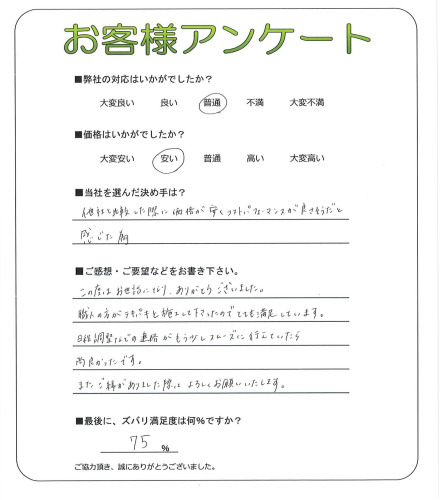 お客様アンケート
■弊社の対応はいかがでしたか？
大変良い 良い 普通 不満 大変不満
■価格はいかがでしたか？
大変安い 安い 普通 高い 大変高い
■当社を選んだ決め手は？
他社と比較した際に価格が安くコストパフォーマンスが良さそうだと
感じた為
■ご感想・ご要望などをお書き下さい。
この度はお世話になり、ありがとうございました。
職人の方がテキパキと施工して下さったのでとても満足しています。
日程調整などの連絡がもう少しスムーズに行えていたら
尚良かったです。
またご縁がありました際はよろしくお願いいたします。
■最後に、ズバリ満足度は何%ですか？
75 %
ご協力頂き、誠にありがとうございました。